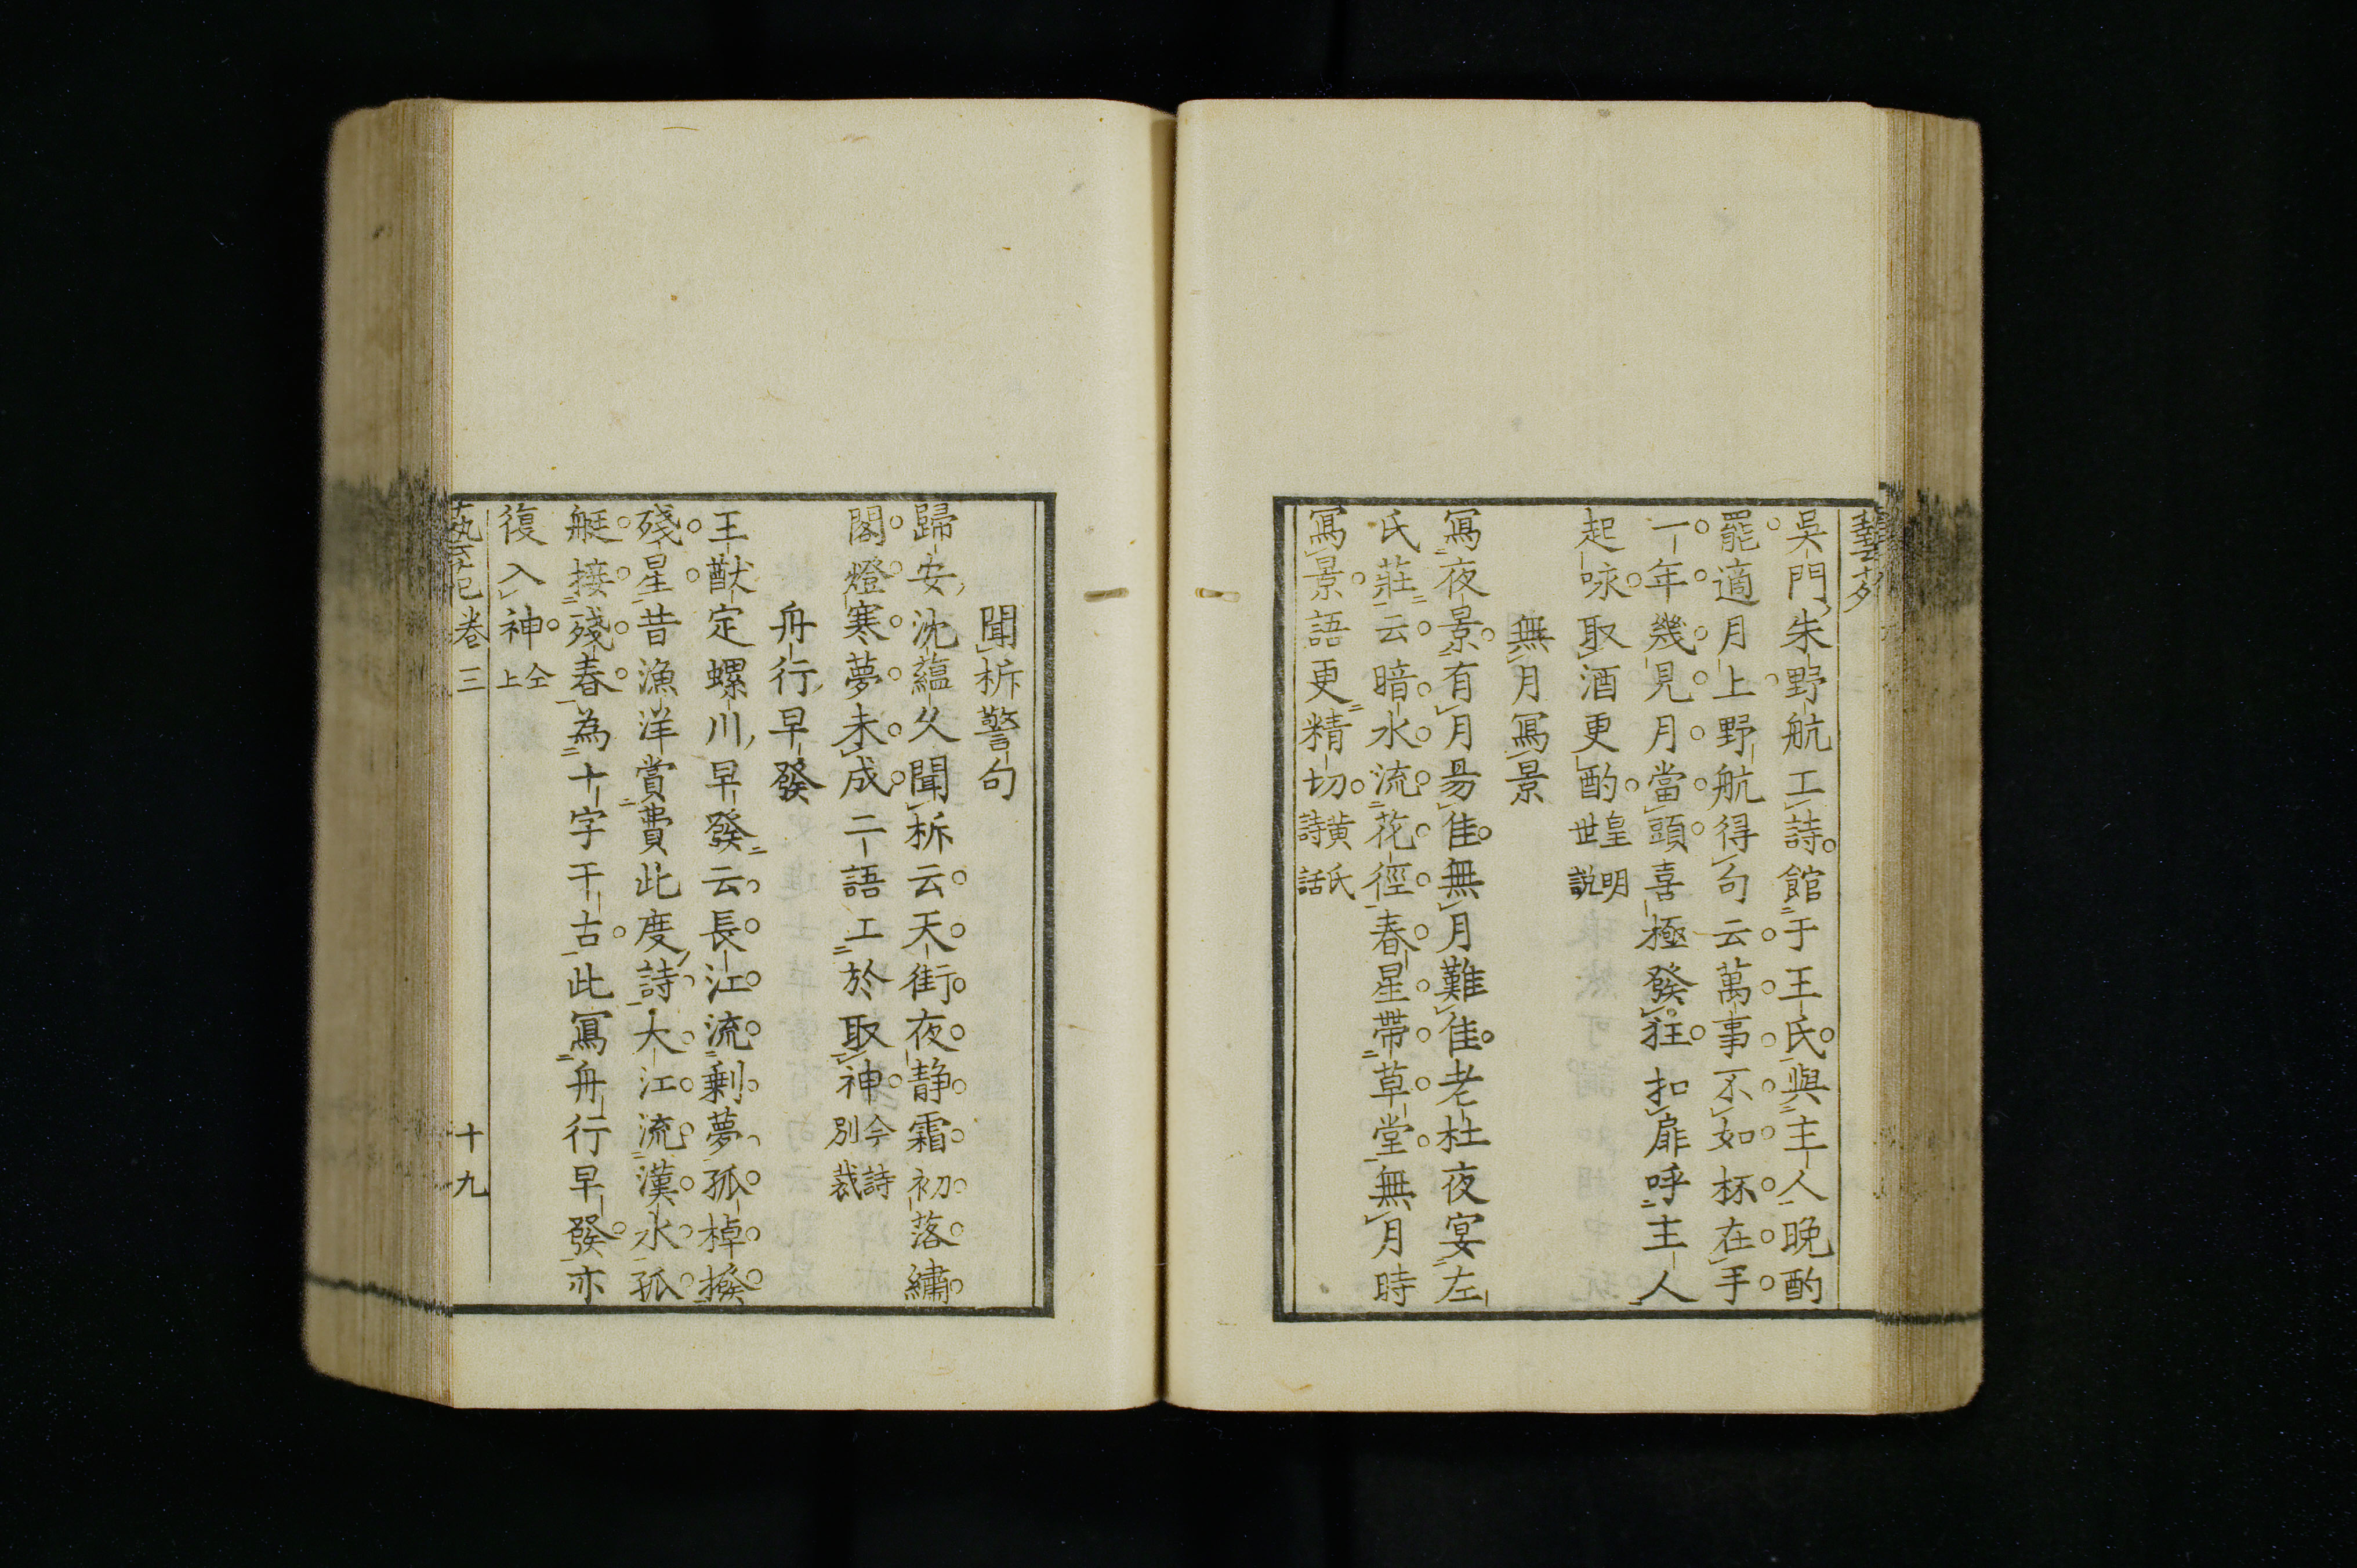 吳門朱野航工詩館于王氏與主人晩酌
罷適月上野航得句云萬事不如杯在手
一年幾見月當頭喜極發狂扣扉呼主人
起咏取酒更酌皇明世説
無月寫景
寫夜景有月易佳無月難佳老杜夜宴左
氏莊云暗水流花徑春星帶草堂無月時
寫景語更精切黄氏詩話
聞柝警句
歸安沈蘊父聞柝云天街夜静霜初落繡
閣燈寒夢未成二語工於取神今詩別裁
舟行早發
王猷定螺川早發云長江流剩夢孤棹撥
殘星昔漁洋賞費此度詩大江流漢水孤
艇接殘春為十字千古此寫舟行早發亦
復入神仝上
卷三
十九